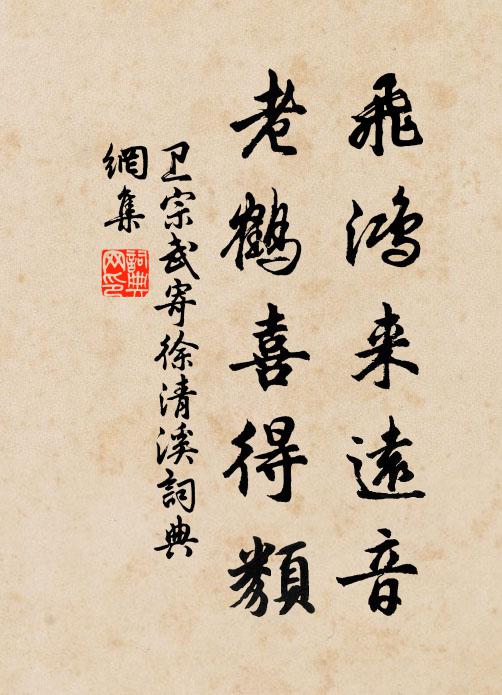 飛鸿来遠音
老鶴喜得類
卫宗武寄徐清溪詞典
網集
詞典
网印